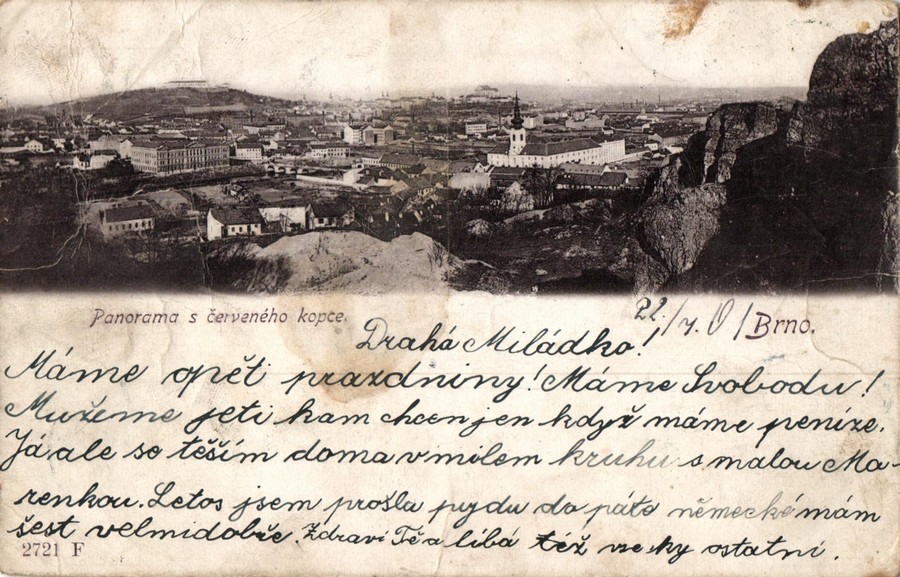 Panorama s červeného kopce.
22./7.0/ Brno.
Drahá Miládko!
Máme opět prazdniny! Máme Svobodu!
Mužeme jeti kam chcen jen když máme peníze.
Já ale se těším doma v milem kruhu s malou Ma-
renkou. Letos jsem prošla pujdu do páte německé mám
šest velmidobře. Zdraví Tě a líbá též vsecky ostatní.
2721 F